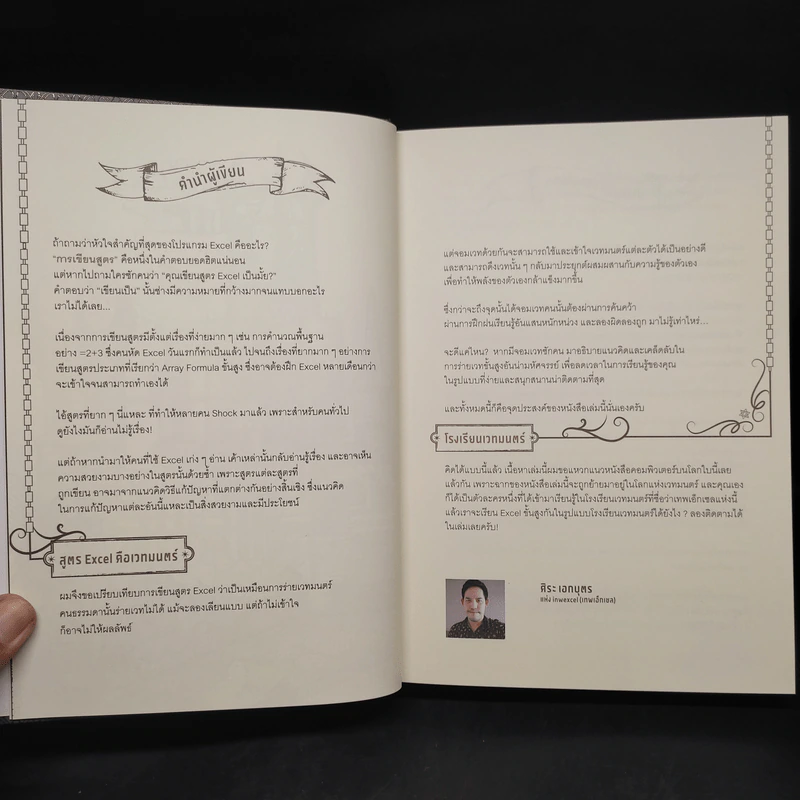 คำนำผู้เขียน
ถ้าถามว่าหัวใจสำคัญที่สุดของโปรแกรม Excel คืออะไร?
"การเขียนสูตร" คือหนึ่งในคำตอบยอดฮิตแน่นอน
แต่หากไปถามใครซักคนว่า "คุณเขียนสูตร Excel เป็นมั้ย?"
คำตอบว่า "เขียนเป็น" นั้นช่างมีความหมายที่กว้างมากจนแทบบอกอะไร
เราไม่ได้เลย...
เนื่องจากการเขียนสูตรมีตั้งแต่เรื่องที่ง่ายมาก ๆ เช่น การคำนวณพื้นฐาน
อย่าง =2+3 ซึ่งคนหัด Excel วันแรกก็ทำเป็นแล้ว ไปจนถึงเรื่องที่ยากมาก ๆ อย่างการ
เขียนสูตรประเภทที่เรียกว่า Array Formula ขั้นสูง ซึ่งอาจต้องฝึก Excel หลายเดือนกว่า
จะเข้าใจจนสามารถทำเองได้
ไอ้สูตรที่ยาก ๆ นี่แหละ ที่ทำให้หลายคน Shock มาแล้ว เพราะสำหรับคนทั่วไป
ดูยังไงมันก็อ่านไม่รู้เรื่อง!
แต่ถ้าหากนำมาให้คนที่ใช้ Excel เก่ง ๆ อ่าน เค้าเหล่านั้นกลับอ่านรู้เรื่อง และอาจเห็น
ความสวยงามบางอย่างในสูตรนั้นด้วยซ้ำ เพราะสูตรแต่ละสูตรที่
ถูกเขียน อาจมาจากแนวคิดวิธีแก้ปัญหาที่แตกต่างกันอย่างสิ้นเชิง ซึ่งแนวคิด
ในการแก้ปัญหาแต่ละอันนี้แหละเป็นสิ่งสวยงามและมีประโยชน์
สูตร Excel คือเวทมนตร์
ผมจึงขอเปรียบเทียบการเขียนสูตร Excel ว่าเป็นเหมือนการร่ายเวทมนตร์
คนธรรมดานั้นร่ายเวทไม่ได้ แม้จะลองเลียนแบบ แต่ถ้าไม่เข้าใจ
ก็อาจไม่ให้ผลลัพธ์
แต่จอมเวทด้วยกันจะสามารถใช้และเข้าใจเวทมนตร์แต่ละตัวได้เป็นอย่างดี
และสามารถดึงเวทนั้น ๆ กลับมาประยุกต์ผสมผสานกับความรู้ของตัวเอง
เพื่อทำให้พลังของตัวเองกล้าแข็งมากขึ้น
ซึ่งกว่าจะถึงจุดนั้นได้จอมเวทคนนั้นต้องผ่านการค้นคว้า
ผ่านการฝึกฝนเรียนรู้อันแสนหนักหน่วง และลองผิดลองถูก มาไม่รู้เท่าไหร่...
จะดีแค่ไหน? หากมีจอมเวทซักคน มาอธิบายแนวคิดและเคล็ดลับใน
การร่ายเวทขั้นสูงอันน่ามหัศจรรย์ เพื่อลดเวลาในการเรียนรู้ของคุณ
ในรูปแบบที่ง่ายและสนุกสนานน่าติดตามที่สุด
และทั้งหมดนี้ก็คือจุดประสงค์ของหนังสือเล่มนี้นั่นเองครับ
โรงเรียนเวทมนตร์
คิดได้แบบนี้แล้ว เนื้อหาเล่มนี้ผมขอแหวกแนวหนังสือคอมพิวเตอร์บนโลกใบนี้เลย
แล้วกัน เพราะฉากของหนังสือเล่มนี้จะถูกย้ายมาอยู่ในโลกแห่งเวทมนตร์ และคุณเอง
ก็ได้เป็นตัวละครหนึ่งที่ได้เข้ามาเรียนรู้ในโรงเรียนเวทมนตร์ที่ชื่อว่าเทพเอ็กเซลแห่งนี้
แล้วเราจะเรียน Excel ขั้นสูงกันในรูปแบบโรงเรียนเวทมนตร์ได้ยังไง ? ลองติดตามได้
ในเล่มเลยครับ!
ศิระ เอกบุตร
แห่ง inwexcel (เทพเอ็กเซล)